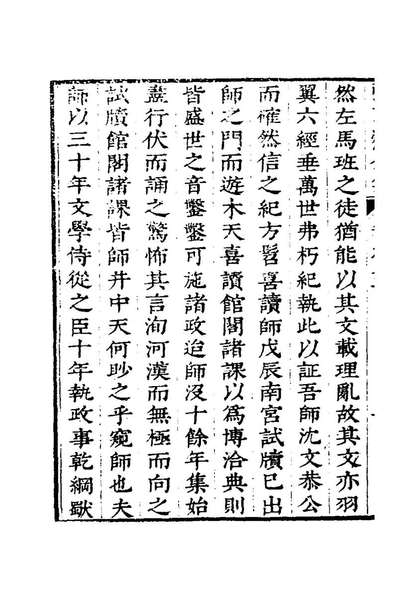 然左馬班之徒猶能以其文載理亂故其文亦羽
翼六經垂萬世弗朽紀執此以証吾師沈文恭公
而確然信之紀方髫喜讀師戊辰南宮試牘已出
師之門而遊木天喜讀館閣諸課以爲博洽典則
皆盛世之音鑿鑿可施諸政迨師沒十餘年集始
盡行伏而誦之驚怖其言洵河漢而無極而向之
試牘館閣諸課皆師井中天何眇之乎窺師也夫
師以三十年文學侍從之臣十年執政事乾綱歐